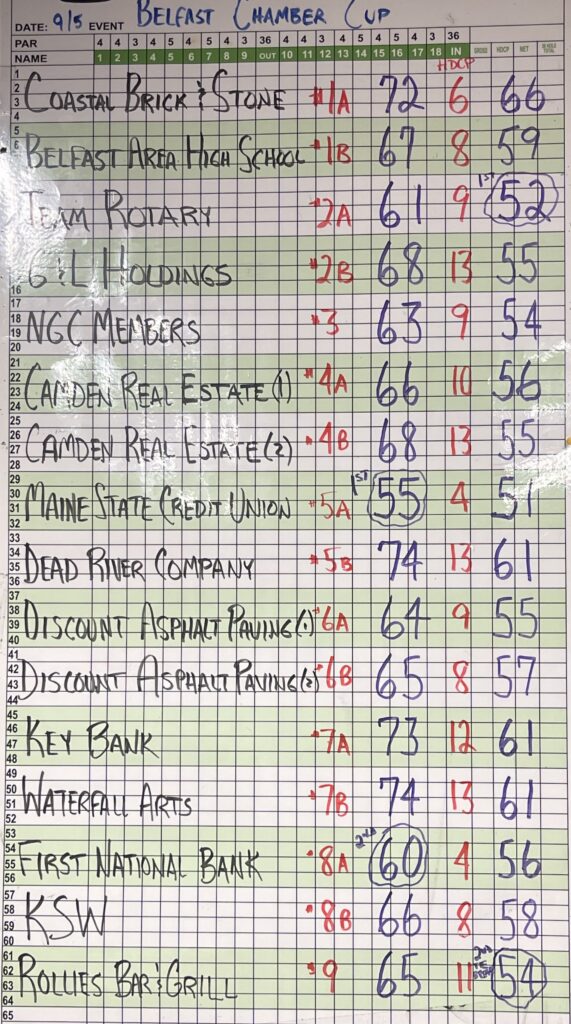 DATE: 9/5 EVENT BELFAST CHAMBER CUP
PAR 4 4 3 4 5 4 5 4 3 36 4 4 4 3 4 5 4 5 3 36
NAME 1 2 3 4 5 6 7 8 9 OUT 10 11 12 13 14 15 16 17 18 IN GROSS HDCP NET
HDCP
COASTAL BRICK & STONE #1A 72 6 66
BELFAST AREA HIGH SCHOOL #1B 67 8 59
TEAM ROTARY #2A 61 9 1ST 52
G & L HOLDINGS #2B 68 13 55
NGC MEMBERS #3 63 9 54
CAMDEN REAL ESTATE (1) #4A 66 10 56
CAMDEN REAL ESTATE (2) #4B 68 13 55
MAINE STATE CREDIT UNION #5A 1ST 55 4 51
DEAD RIVER COMPANY #5B 74 13 61
DISCOUNT ASPHALT PAVING (1) #6A 64 9 55
DISCOUNT ASPHALT PAVING (2) #6B 65 8 57
KEY BANK #7A 73 12 61
WATERFALL ARTS #7B 74 13 61
FIRST NATIONAL BANK #8A 2ND 60 4 56
KSW #8B 66 8 58
ROLLIES BAR & GRILL #9 65 11 2ND 54